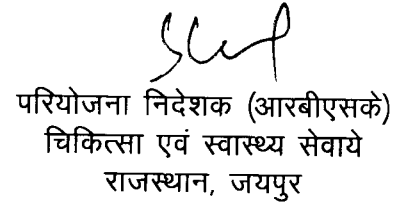 परियोजना निदेशक (आरबीएसके)
चिकित्सा एवं स्वास्थ्य सेवाये
राजस्थान, जयपुर